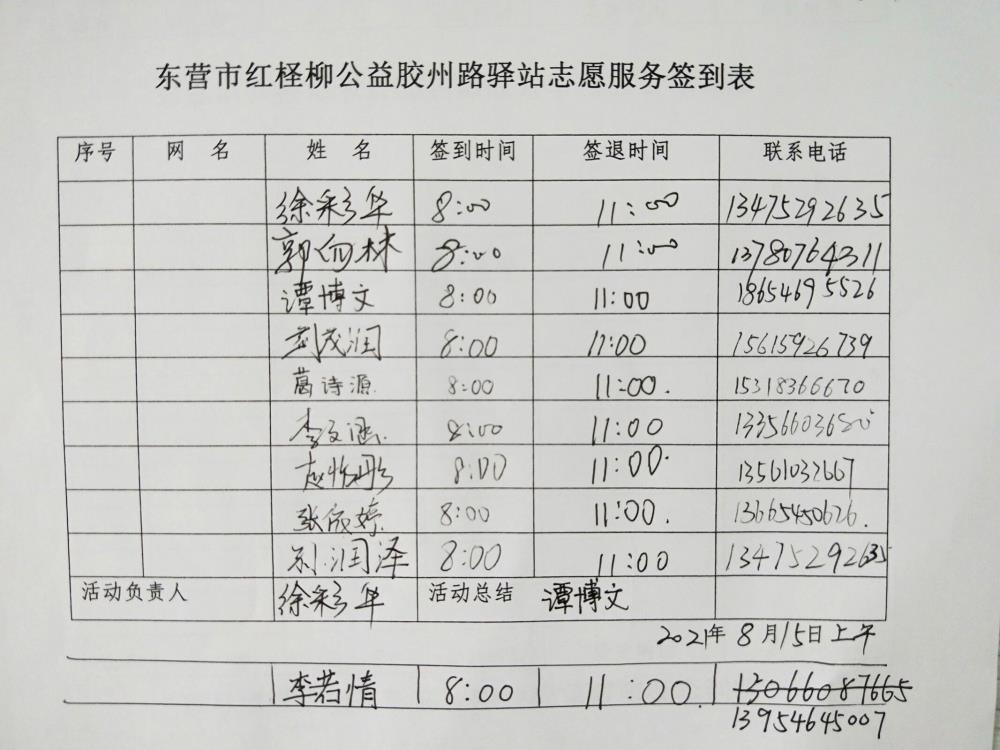 东营市红柽柳公益胶州路驿站志愿服务签到表
序号 网 名 姓 名 签到时间 签退时间 联系电话
徐彩华 8:00 11:00 13475292635
郭向林 8:00 11:00 13780764311
谭博文 8:00 11:00 18654695526
武茂润 8:00 11:00 15615926739
葛诗源 8:00 11:00. 15318366670
李文涵 8:00 11:00 13356603680
赵怡彤 8:00 11:00. 13561032667
张依婷 8:00 11:00. 13665450626.
刘润泽 8:00 11:00 13475292635
活动负责人 徐彩华 活动总结 谭博文
2021年8月15日上午
李若情 8:00 11:00. 13066087665
13954645007